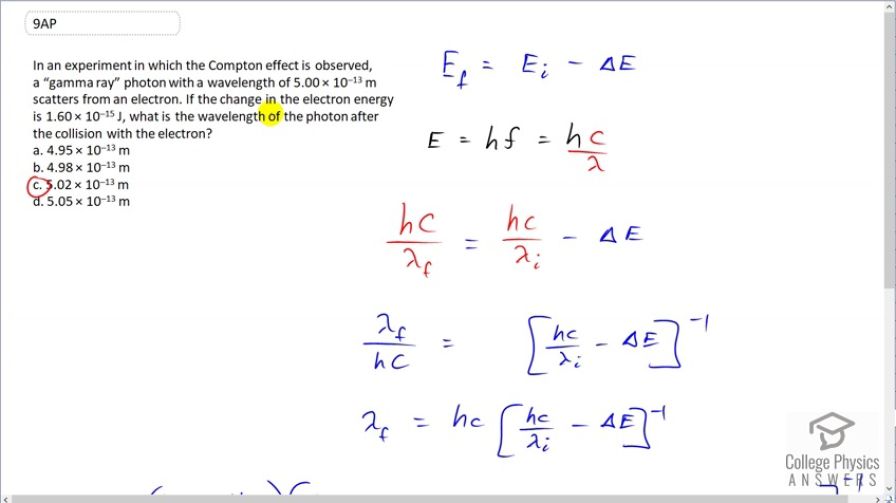 9AP
In an experiment in which the Compton effect is observed,
a “gamma ray” photon with a wavelength of 5.00 × 10⁻¹³ m
scatters from an electron. If the change in the electron energy
is 1.60 × 10⁻¹⁵ J, what is the wavelength of the photon after
the collision with the electron?
a. 4.95 × 10⁻¹³ m
b. 4.98 × 10⁻¹³ m
c. 5.02 × 10⁻¹³ m
d. 5.05 × 10⁻¹³ m
E_f = E_i − ΔE
E = hf = hc/λ
hC/λ_f = hc/λ_i − ΔE
λ_f/hC = [hc/λ_i − ΔE]⁻¹
λ_f = hc [hc/λ_i − ΔE]⁻¹
College Physics
ANSWERS